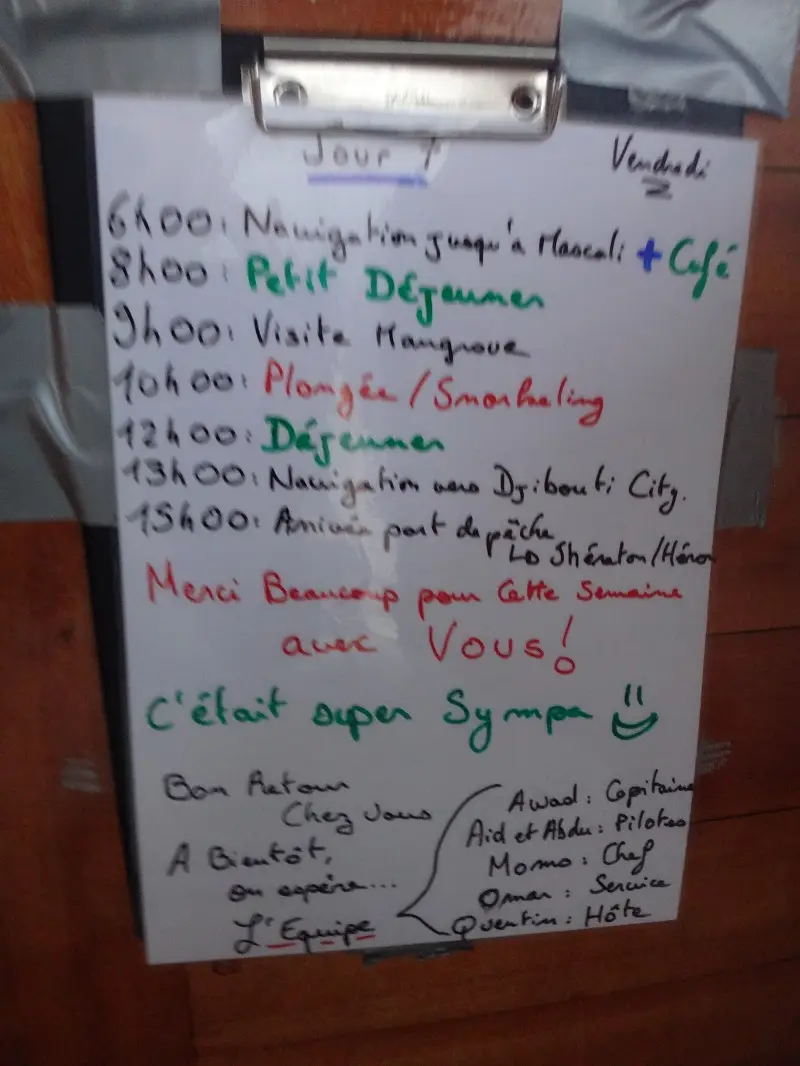 Jour 7
Vendredi
6h00: Navigation jusqu'à Mascali + Café
8h00: Petit Déjeuner
9h00: Visite Mangrove
10h00: Plongée/Snorkeling
12h00: Déjeuner
13h00: Navigation vers Djibouti City.
15h00: Arrivée port de pêche
Shératon/Héron
Merci Beaucoup pour Cette Semaine
avec Vous!
C'était super Sympa
Bon Retour
Chez Vous
A Bientôt,
on espère...
L'Equipe
Awad: Capitaine
Aid et Abdu: Pilotes
Momo: Chef
Omar: Service
Quentin: Hôte